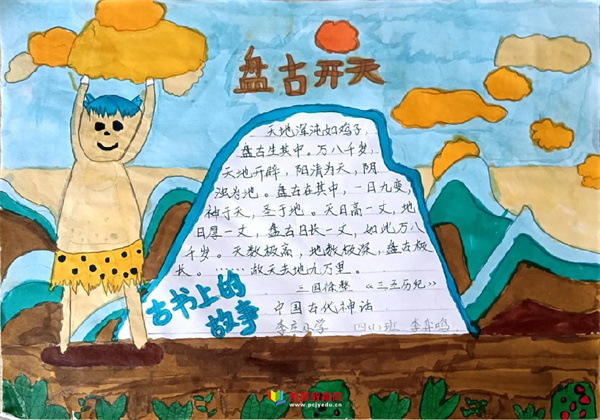 盘古开天
天地浑沌如鸡子，
盘古生其中。万八千岁，
天地开辟，阳清为天，阴
浊为地。盘古在其中，一日九变，
神于天，圣于地。天日高一丈，地
日厚一丈，盘古日长一丈，如此万八
千岁。天数极高，地数极深，盘古极
长。……故天去地九万里。
三国徐整 《三五历纪》
中国古代神话
古书上的
故事
小学 四(1)班 李
www.pcjyedu.cn